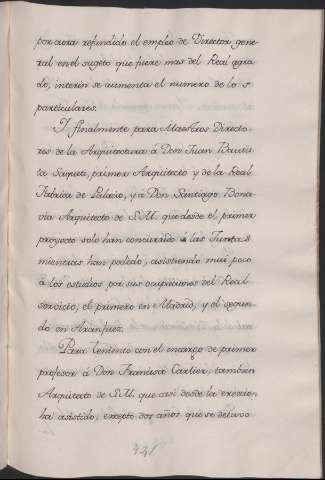 por aora refundido el empleo de Director gene-
ral en el sugeto que fuere mas del Real agra-
do, interin se aumenta el numero de los
particulares.
Y finalmente para Maestros Directo-
res de la Arquitectura á Don Juan Bautis-
ta Saqueti, primer Arquitecto y de la Real
Fabrica de Palacio, y á Don Santiago Bona-
via Arquitecto de S.M. que desde el primer
proyecto solo han concurrido á las Juntas
mientras han podido, asistiendo mui poco
á los estudios por sus ocupaciones del Real
servicio, el primero en Madrid, y el segun-
do en Aranjuez.
Para teniente con el encargo de primer
profesor á Don Francisco Carlier, tambien
Arquitecto de S.M. que asi desde la ereccion
ha asistido, excepto dos años que se detuvo